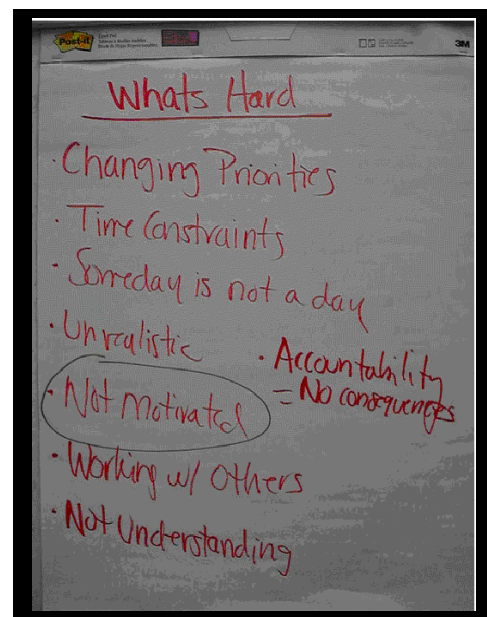 Post-it
3M
Whats Hard
· Changing Priorities
· Time Constraints
· Someday is not a day
· Unrealistic
· Accountability
= No consequences
· Not Motivated
· Working w/ Others
· Not Understanding